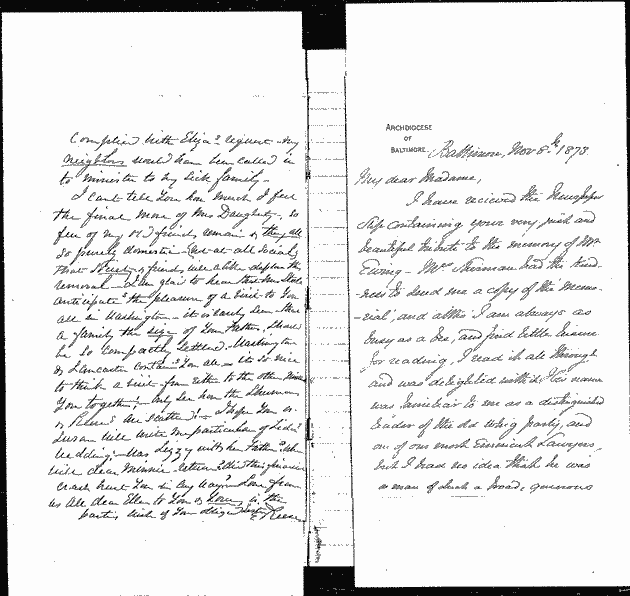 Complied with Eliza's request - my
neighbors would have been called in
to minister to my sick family -
I can't tell you how much I feel
the final move of Mrs Daugherty - so
few of my old friends remain & they all
so purely domestic - not at all socially
that I must as friend
removal - I am glad to hear that Mrs
anticipates the pleasure of a visit to you
all in Washington - it is rarely seen - that
a family the size of your Father's, should
be so compactly settled - Washington
& Lancaster contains you all - its so nice
to think a visit from either to the other
you together! - only see how the Shermans
& are scattered! - I hope you or
Susan will write me particulars of
wedding - was Lizzy with her Father?
will dear Minnie this financial
crash hurt you in any way? - Love from
us all dear Ellen to you & yours is the
parting wish of your Reese
ARCHDIOCESE
OF
BALTIMORE.
Baltimore, Nov 8th 1873.
My dear Madame,
I have recieved the Newspaper
slip containing your very just and
beautiful tribute to the memory of Mr
Ewing - Mrs Sherman had the kind-
ness to send me a copy of the Memo-
-rial, and altho' I am always as
busy as a bee, and find little leisure
for reading, I read it all through
and was delighted with it. His name
was familiar to me as a distinguished
leader of the old Whig party, and
one of our most Eminent Lawyers,
but I had no idea that he was
a man of such a broad, generous